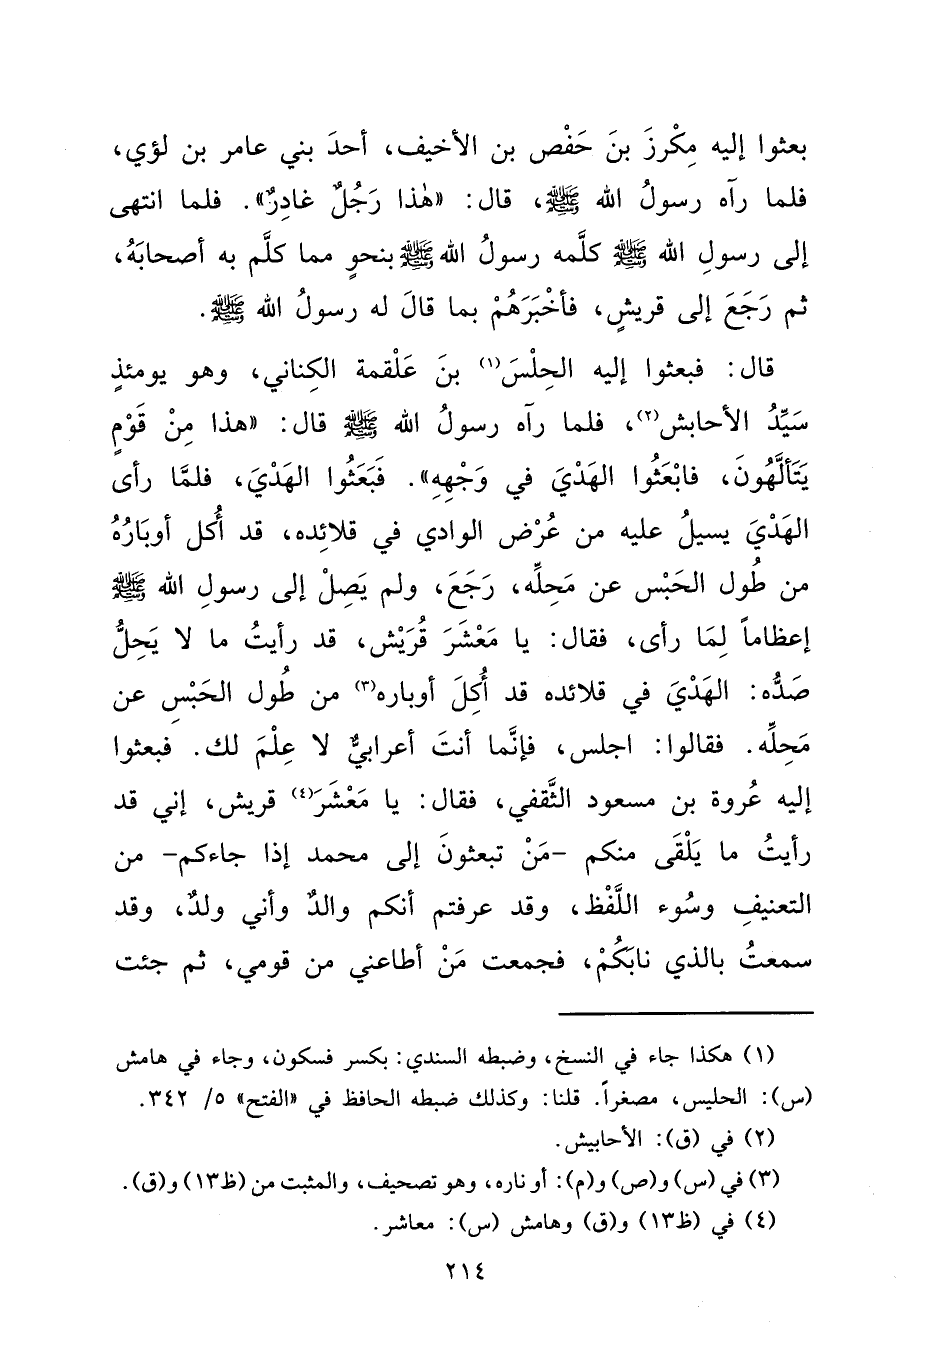 بعثوا إليه مِكْرزَ بنَ حَفْص بن الأخيف، أحدَ بني عامر بن لؤي،
فلما رآه رسولُ الله ﷺ، قال: «هٰذا رَجُلٌ غادِرٌ». فلما انتهى
إلى رسولِ الله ﷺ كلَّمه رسولُ الله ﷺ بنحوٍ مما كلَّم به أصحابَهُ،
ثم رَجَعَ إلى قريشٍ، فأخْبَرَهُمْ بما قالَ له رسولُ الله ﷺ.
قال: فبعثوا إليه الحِلْسَ(١) بنَ عَلْقمة الكِناني، وهو يومئذٍ
سَيِّدُ الأحابش(٢)، فلما رآه رسولُ الله ﷺ قال: «هذا مِنْ قَوْمٍ
يَتَألَّهُونَ، فابْعَثُوا الهَدْيَ في وَجْهِهِ». فَبَعَثُوا الهَدْيَ، فلمَّا رأى
الهَدْيَ يسيلُ عليه من عُرْض الوادي في قلائِده، قد أُكل أوبَارُهُ
من طُول الحَبْس عن مَحِلِّه، رَجَعَ، ولم يَصِلْ إلى رسولِ الله ﷺ
إعظاماً لِمَا رأى، فقال: يا مَعْشَرَ قُرَيْش، قد رأيتُ ما لا يَحِلُّ
صَدُّه: الهَدْيَ في قلائده قد أُكِلَ أوباره(٣) من طُول الحَبْسِ عن
مَحِلِّه. فقالوا: اجلس، فإنَّما أنتَ أعرابيٌّ لا عِلْمَ لك. فبعثوا
إليه عُروة بن مسعود الثَّقفي، فقال: يا مَعْشَرَ(٤) قريش، إني قد
رأيتُ ما يَلْقَى منكم -مَنْ تبعثونَ إلى محمد إذا جاءكم- من
التعنيفِ وسُوء اللَّفْظ، وقد عرفتم أنكم والدٌ وأني ولدٌ، وقد
سمعتُ بالذي نابَكُمْ، فجمعت مَنْ أطاعني من قومي، ثم جئت
(١) هكذا جاء في النسخ، وضبطه السندي: بكسر فسكون، وجاء في هامش
(س): الحليس، مصغراً. قلنا: وكذلك ضبطه الحافظ في «الفتح» ٥/ ٣٤٢.
(٢) في (ق): الأحابيش.
(٣) في (س) و(ص) و(م): أوناره، وهو تصحيف، والمثبت من (ظ١٣) و(ق).
(٤) في (ظ١٣) و(ق) وهامش (س): معاشر.
٢١٤